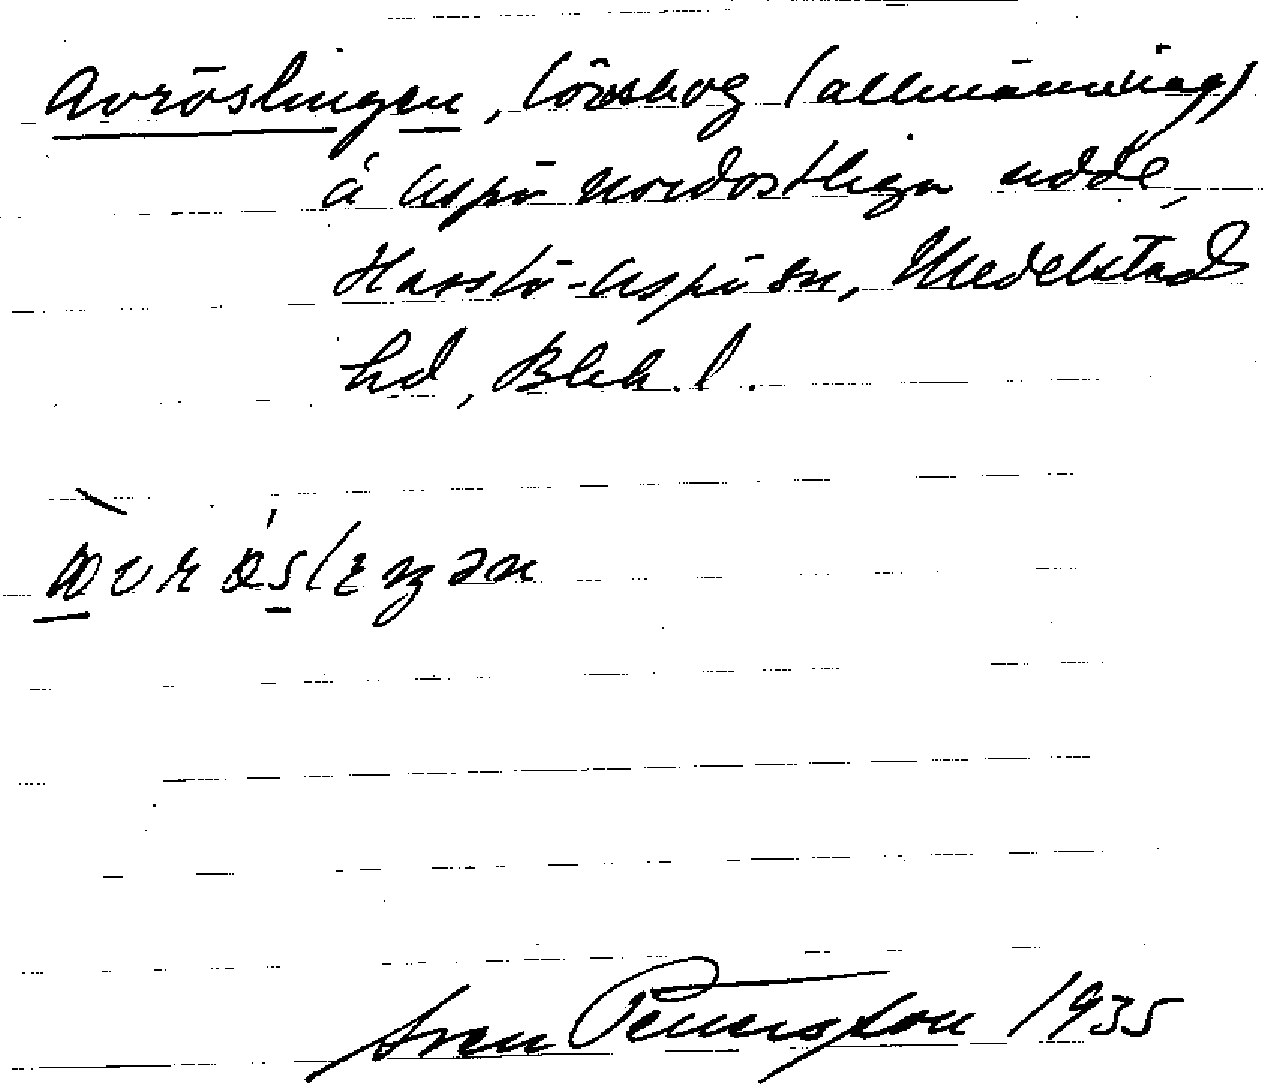 Avröslingen, lövskog (allmänning)
å Aspö nordostliga udde,
Hasslö-Aspö sn, Medelstad
hd, Blek. l.
Sven Peterson 1935